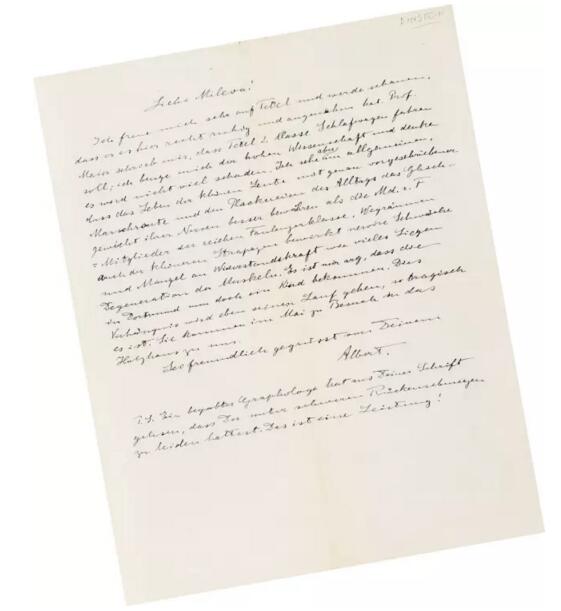 EINSTEIN
Liebe Mileva!
Ich freue mich sehr auf Tetel und werde schauen,
dass er es hier recht ruhig und angenehm hat. Prof.
Maier schrieb mir, dass Tetel 2. Klasse Schlafwagen fahren
soll; ich beuge mich der hohen Wissenschaft und denke
es wird nicht viel schaden. Ich sehe aber im allgemeinen,
dass das Leben der kleinen Leute mit genau vorgeschriebener
Marschroute und den Plackereien des Alltags das Gleich-
gewicht ihrer Nerven besser bewahren als die
Mitglieder der reichen Faulenzerklasse. Wegräumen
auch der kleineren Strapazen bewirkt nervöse Schwäche
und Mangel an Widerstandskraft wie vieles Liegen
Degeneration der Muskeln. Es ist mir arg, dass die
in Dortmund nun doch ein Kind bekommen. Das
Verhängnis wird eben seinen Lauf gehen, so tragisch
es ist. Sie kommen im Mai zu Besuch in das
Holzhaus zu uns.
Sei freundlich gegrüsst von Deinem
Albert.
P.S. Ein begabter Graphologe hat aus Deiner Schrift
gelesen, dass Du unter schweren Rückenschmerzen
zu leiden hattest. Das ist eine Leistung!